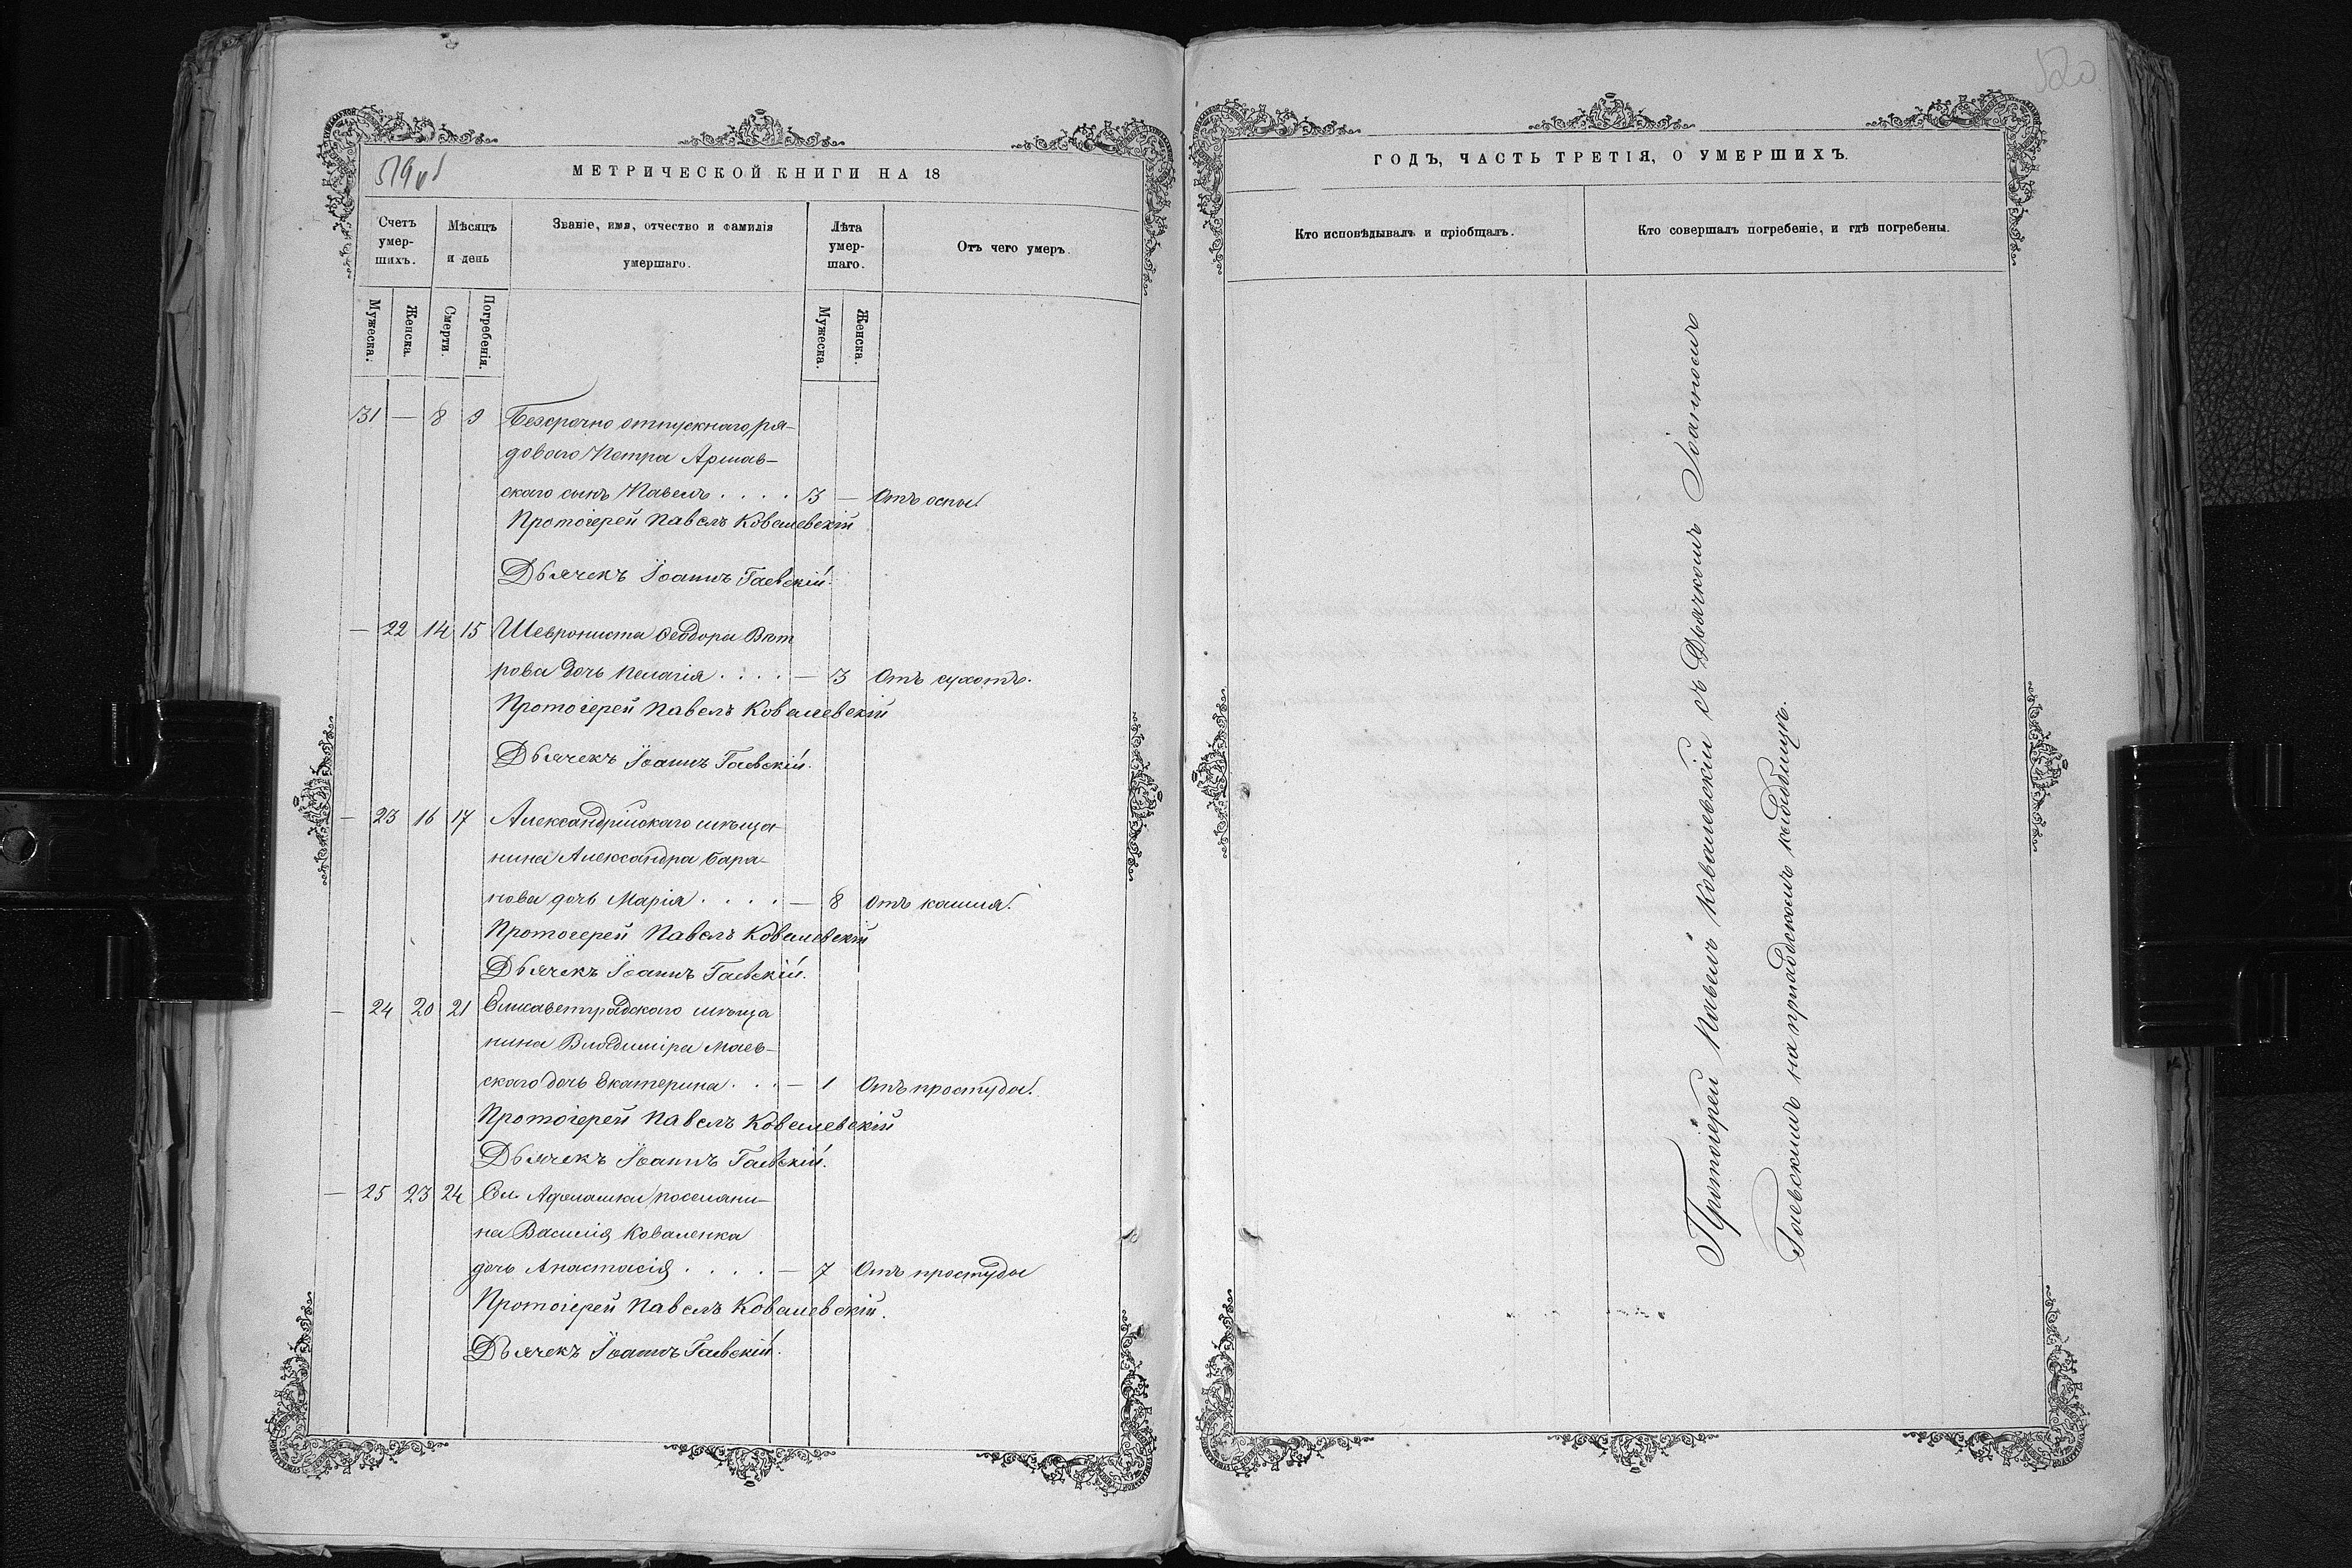 519 об
МЕТРИЧЕСКОЙ КНИГИ НА 18
Счетъ умер-шихъ.
Мѣсяцъ и день
Званіе, имя, отчество и фамилія умершаго.
Лѣта умер-шаго.
Отъ чего умеръ.
Мужеска.
Женска.
Смерти.
Погребенія.
Мужеска.
Женска.
31 — 8 9 Безсрочно отпускнаго ря-
доваго Петра Аршав-
скаго сынъ Павелъ . . . . 3 — Отъ оспы.
Протоіерей Павелъ Ковалевскій
Дьячекъ Іоаннъ Гаевскій.
— 22 14 15 Шеврониста Ѳеодора Вет
рова дочь Пелагія . . . . — 3 Отъ сухотъ.
Протоіерей Павелъ Ковалевскій
Дьячекъ Іоаннъ Гаевскій.
— 23 16 17 Александрійскаго мѣща-
нина Александра Бара-
нова дочь Марія . . . . — 8 Отъ кашля.
Протоіерей Павелъ Ковалевскій
Дьячекъ Іоаннъ Гаевскій.
— 24 20 21 Елисаветградскаго мѣща
нина Владиміра Маев-
скаго дочь Екатерина . . . — 1 Отъ простуды.
Протоіерей Павелъ Ковалевскій
Дьячекъ Іоаннъ Гаевскій.
— 25 23 24 поселяни-
на Василія Коваленка
дочь Анастасія . . . . — 7 Отъ простуды
Протоіерей Павелъ Ковалевскій.
Дьячекъ Іоаннъ Гаевскій.
520
ГОДЪ, ЧАСТЬ ТРЕТІЯ, О УМЕРШИХЪ.
Кто исповѣдывалъ и пріобщалъ.
Кто совершалъ погребеніе, и гдѣ погребены.
Протоіерей Павелъ Ковалевскій съ Дьячкомъ Іоанномъ
Гаевскимъ на приходскомъ кладбищѣ.